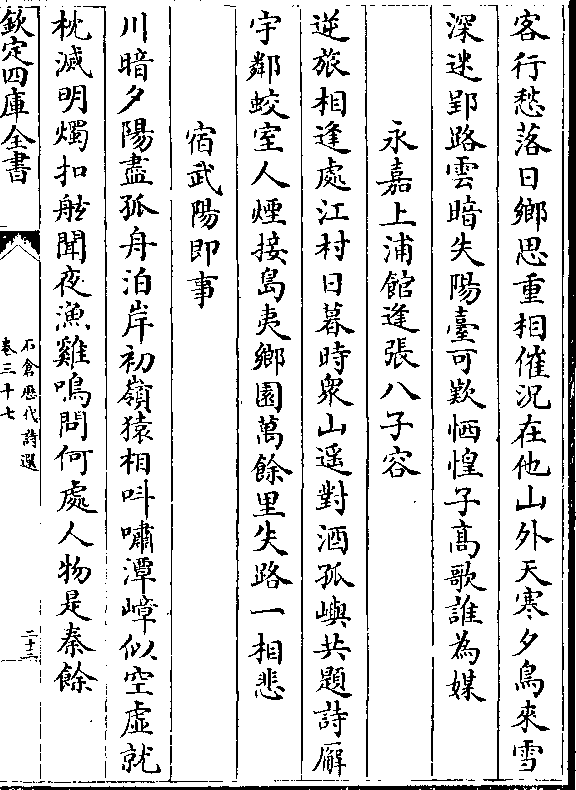 客行愁落日鄉思重相催況在他山外天寒夕鳥來雪
深迷郢路雲暗失陽臺可歎悽惶子高歌誰為媒
永嘉上浦館逢張八子容
逆旅相逢處江村日暮時衆山遥對酒孤嶼共題詩廨
宇鄰蛟室人煙接島夷鄉園萬餘里失路一相悲
宿武陽即事
川暗夕陽盡孤舟泊岸初嶺猿相呌嘯潭嶂似空虛就
枕滅明燭扣舷聞夜漁雞鳴問何處人物是秦餘
欽定四庫全書
石倉歴代詩選
卷三十七
二十三